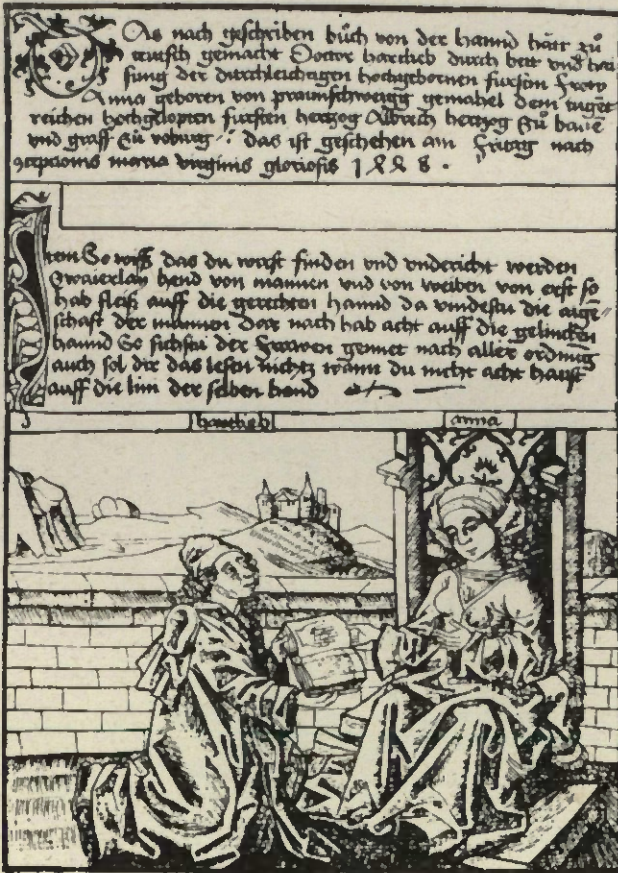 Das nach geschriben büch von der hannd hätt zů
teutsch gemacht Doctor hartlieb durch bett und hai
sung der durchleichtigen hochgebornen furstin Frow
Anna geboren von praunschweigg gemahel dem tuget
reichen hochgelopten fursten hertzog Albrech hertzog zů baiē
und graff zů voburg das ist geschehen am fritag nach
concepcionis maria virginis gloriosis 1448.
Item So wiss das du wirst finden und underricht werden
zwaierlay hend von mannen und von weiben von erst so
hab fleiß auff die gerechten hannd da vindestu die aigē
schaft der mannen Dar nach hab acht auff die gelincken
hannd So sichstu der Frawen gemüt nach aller ordnūg
auch sol dir das lesen nichtz wann du nicht acht haust
auff die lini der selben hand
hartlieb
anna